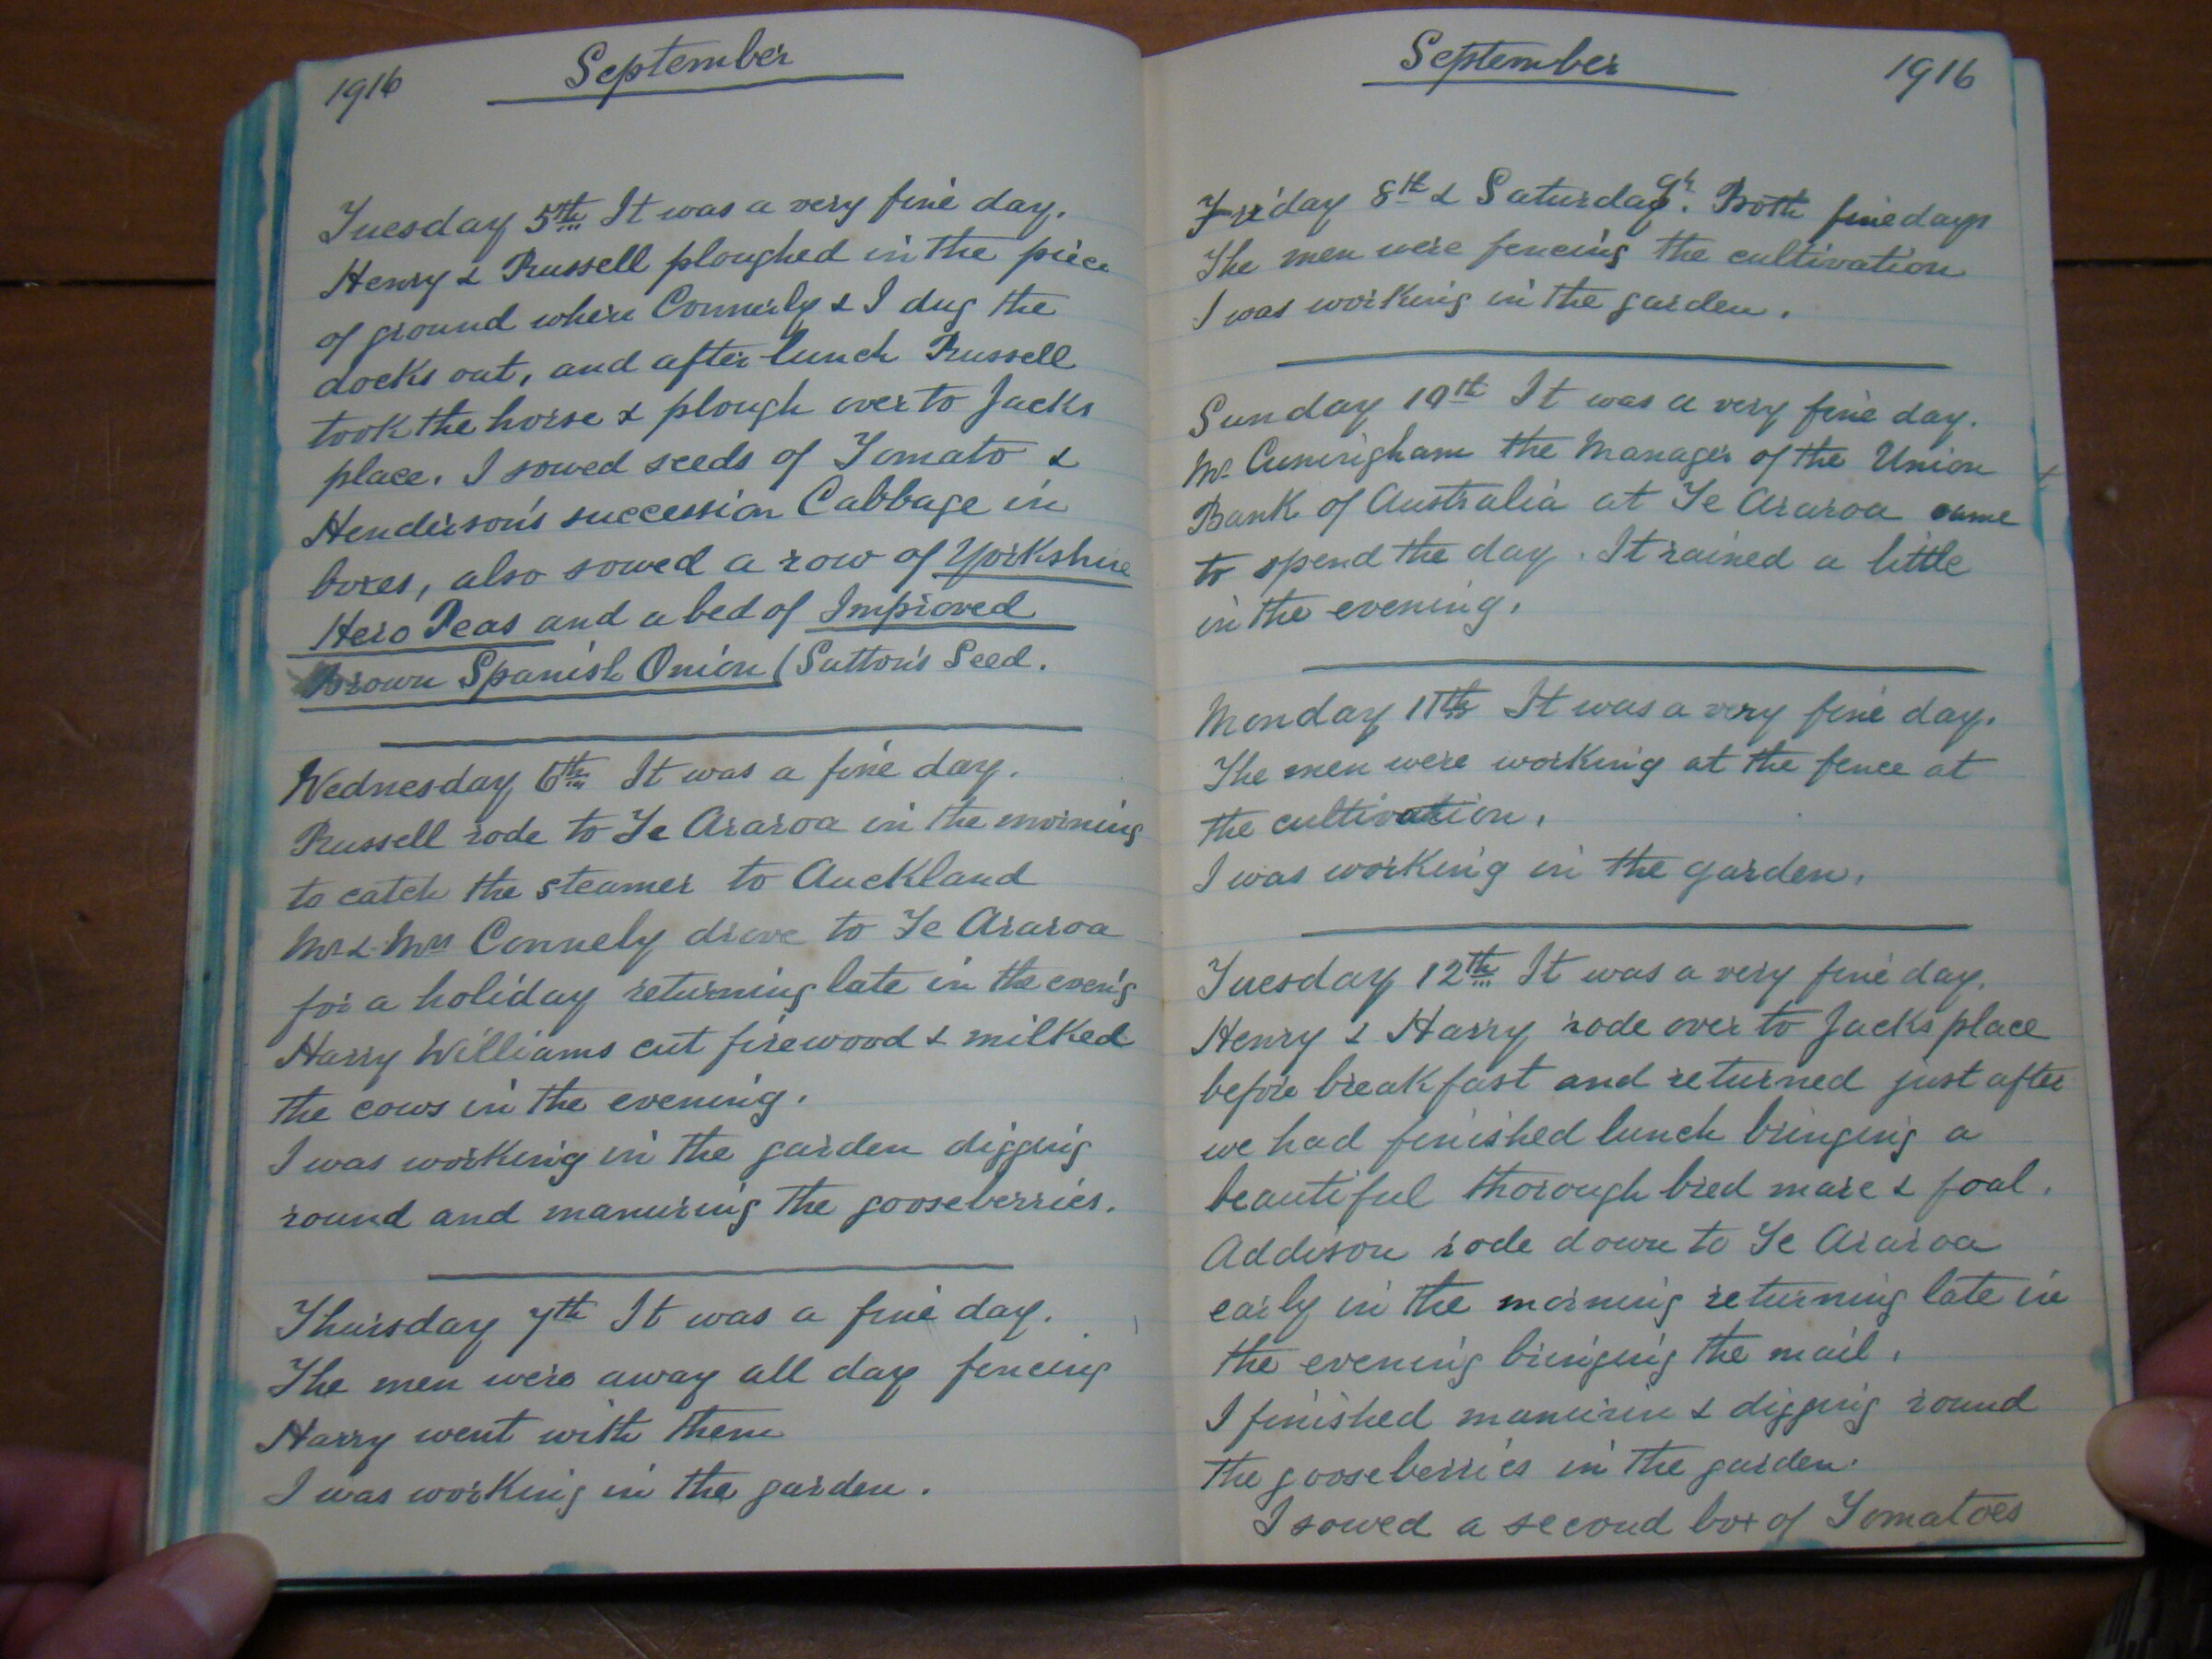 1916 September
Tuesday 5th It was a very fine day.
Henry & Russell ploughed in the piece
of ground where Connerly & I dug the
docks out, and after lunch Russell
took the horse & plough over to Jacks
place. I sowed seeds of Tomato &
Henderson's succession Cabbage in
boxes, also sowed a row of Yorkshire
Hero Peas and a bed of Improved
Brown Spanish Onion (Sutton's Seed.
Wednesday 6th It was a fine day.
Russell rode to Te Araroa in the morning
to catch the steamer to Auckland
Mr & Mrs Connely drove to Te Araroa
for a holiday returning late in the even'g
Harry Williams cut firewood & milked
the cows in the evening.
I was working in the garden digging
round and manuring the gooseberries.
Thursday 7th It was a fine day.
The men were away all day fencing
Harry went with them
I was working in the garden.
September 1916
Friday 8th & Saturday 9th. Both fine days
The men were fencing the cultivation
I was working in the garden.
Sunday 10th It was a very fine day.
Mr Cuningham the Manager of the Union
Bank of Australia at Te Araroa came
to spend the day. It rained a little
in the evening.
Monday 11th It was a very fine day.
The men were working at the fence at
the cultivation.
I was working in the garden.
Tuesday 12th It was a very fine day.
Henry & Harry rode over to Jacks place
before breakfast and returned just after
we had finished lunch bringing a
beautiful thorough bred mare & foal.
Addison rode down to Te Araroa
early in the morning returning late in
the evening bringing the mail.
I finished manurin & digging round
the gooseberries in the garden.
I sowed a second box of Tomatoes